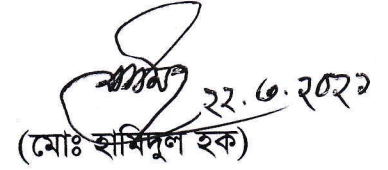 ২২.৬.২০২১
(মোঃ হামিদুল হক)